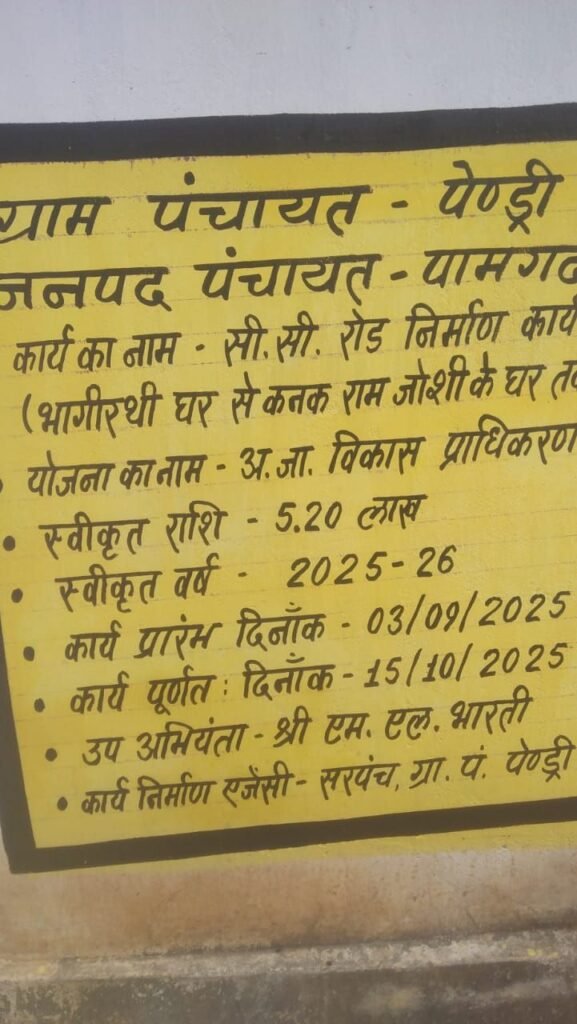 ग्राम पंचायत - पेण्ड्री
जनपद पंचायत - पामगढ
कार्य का नाम - सी.सी. रोड निर्माण कार्य
(भागीरथी घर से कनक राम जोशी के घर तक
• योजना का नाम - अ.जा. विकास प्राधिकरण
• स्वीकृत राशि - 5.20 लाख
• स्वीकृत वर्ष - 2025-26
• कार्य प्रारंभ दिनाँक - 03/09/2025
• कार्य पूर्णत: दिनाँक - 15/10/2025
• उप अभियंता - श्री एम. एल. भारती
• कार्य निर्माण एजेंसी - सरपंच, ग्रा. पं. पेण्ड्री